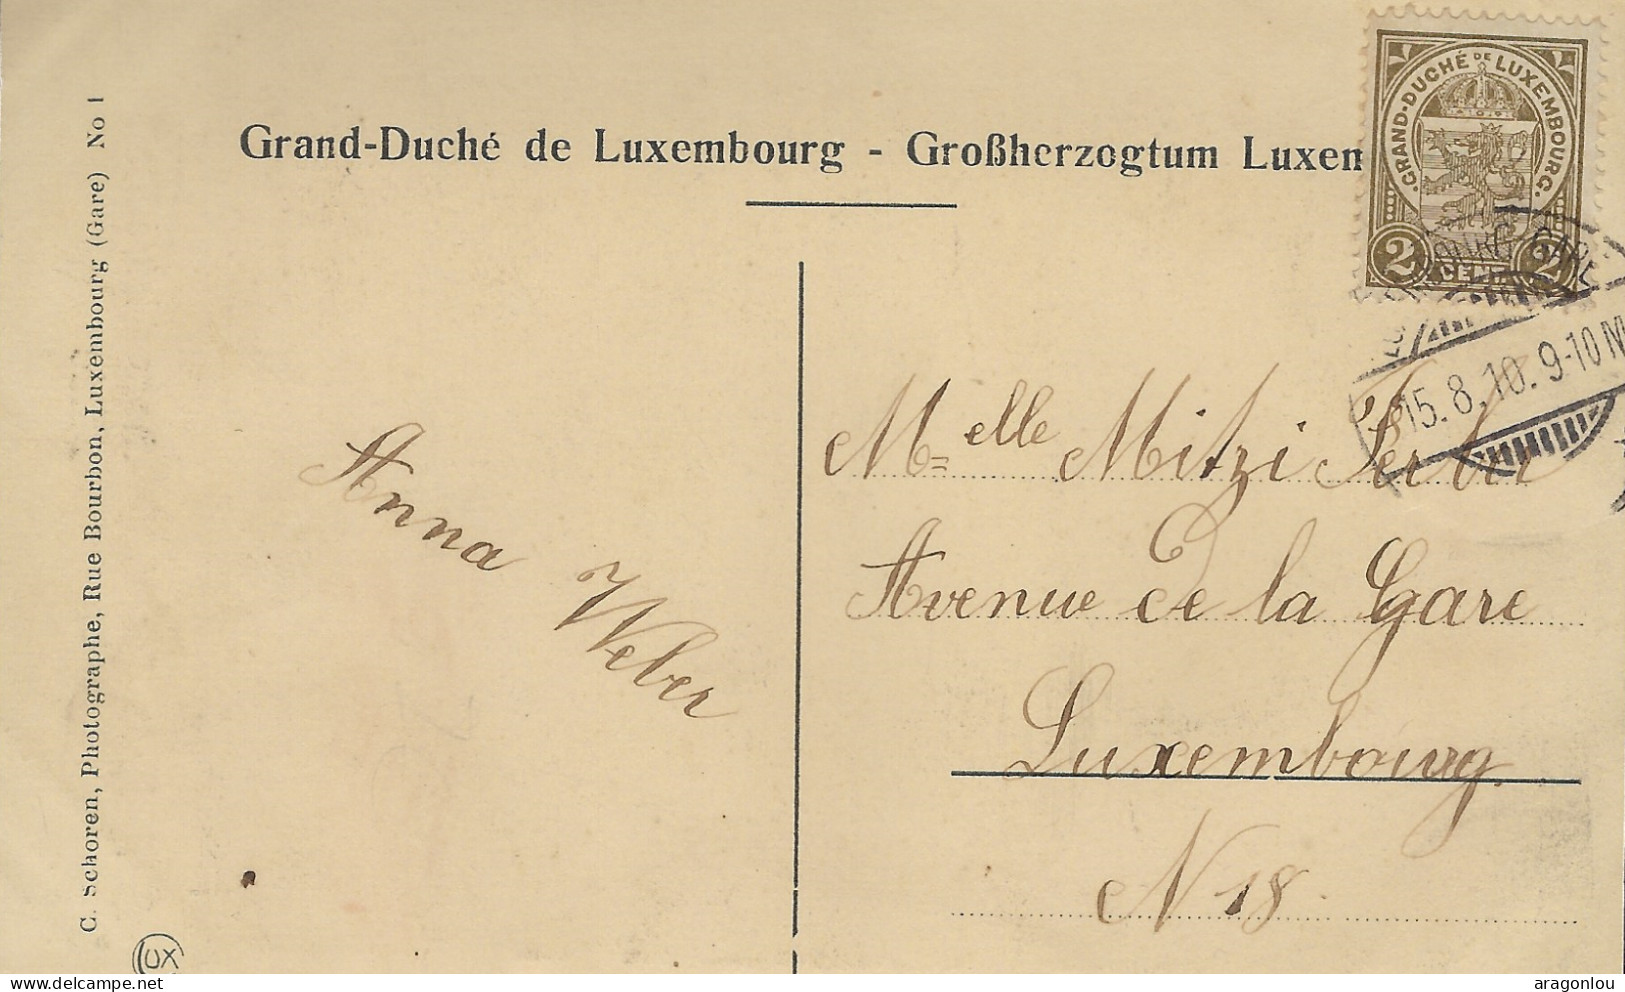 Grand-Duché de Luxembourg - Großherzogtum Luxem
GRAND-DUCHÉ DE LUXEMBOURG.
2 CENT 2
BOURG-GARE
15.8.10. 9-10 M
C. Schoren, Photographe, Rue Bourbon, Luxembourg (Gare) No 1
Anna Weber
Melle Mitzi
Avenue de la Gare
Luxembourg.
N 18.
LUX
delcampe.net
aragonlou